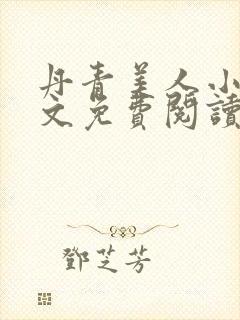 丹青美人小
文免費閱讀
鄧芝芳